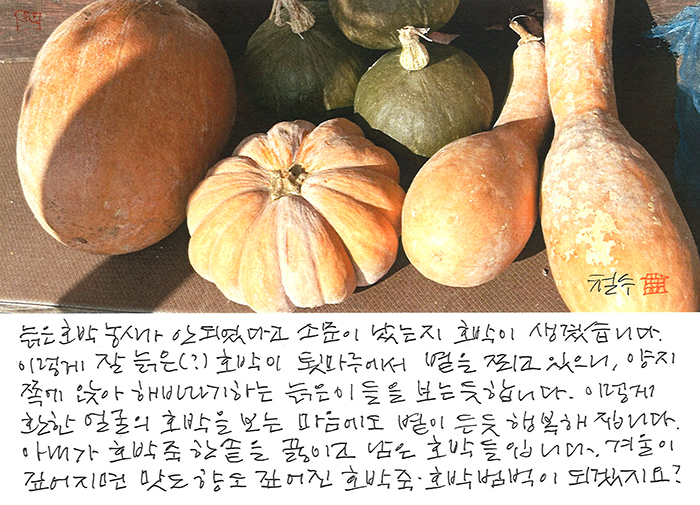 철수
늙은호박 농사가 안되었다고 소문이 났는지 호박이 생겼습니다.
이렇게 잘 늙은(?) 호박이 툇마루에서 볕을 쬐고 있으니, 양지
쪽에 앉아 해바라기하는 늙은이들을 보는듯합니다. 이렇게
환한 얼굴의 호박을 보는 마음에도 볕이 든듯 행복해집니다.
아내가 호박죽 한솥을 끓이고 남은 호박들입니다. 겨울이
깊어지면 맛도 향도 깊어진 호박죽·호박범벅이 되겠지요?